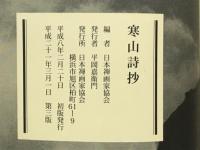 寒山詩抄
編者 日本禅画家協会
発行者 平岡嘉衛門
発行所 日本禅画家協会
横浜市旭区柏町61-9
平成八年二月二十日 初版発行
平成二十一年三月一日 第三版